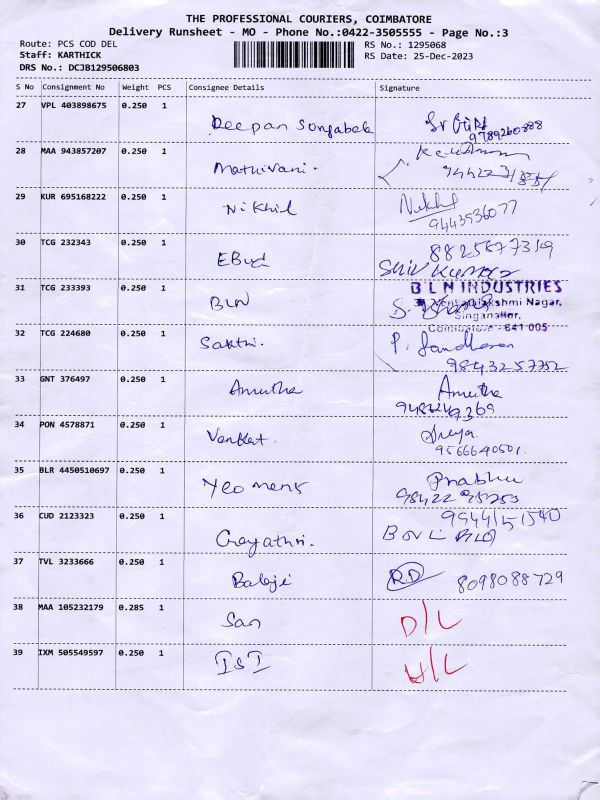 THE PROFESSIONAL COURIERS, COIMBATORE
Delivery Runsheet - MO - Phone No.:0422-3505555 - Page No.:3
Route: PCS COD DEL
RS No.: 1295068
Staff: KARTHICK
RS Date: 25-Dec-2023
DRS No.: DCJB129506803
S No Consignment No Weight PCS Consignee Details Signature
27 VPL 403898675 0.250 1
Deepan
9789260888
28 MAA 943857207 0.250 1
Mathivani.
29 KUR 695168222 0.250 1
Nikhil Nikhil
9443936077
30 TCG 232343 0.250 1
8825677319
Shiv Kumar
31 TCG 233393 0.250 1
BLN
BLN INDUSTRIES
Nagar,
Singanallur,
Coimbatore - 641 005
32 TCG 224680 0.250 1
Sakthi. P.
9843257752
33 GNT 376497 0.250 1
Amutha Amutha
34 PON 4578871 0.250 1
Venkat.
9566640501.
35 BLR 4450510697 0.250 1
Yeomens Prabhu
36 CUD 2123323 0.250 1
9944151540
Gayathri.
37 TVL 3233666 0.250 1
Balaji RD 8098088729
38 MAA 105232179 0.285 1
San D/L
39 IXM 505549597 0.250 1
IST H/L